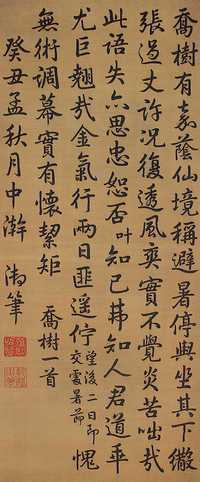 喬樹有嘉蔭仙境稱避暑停輿坐其下繖
張過丈許況復透風爽實不覺炎苦咄哉
此語失亦思忠恕否叶知己弗知人君道乎
尤巨翹哉金氣行兩日匪遥佇望後二日即交處暑節愧
無術調幕實有懷絜矩 喬樹一首
癸丑孟秋月中澣 御筆